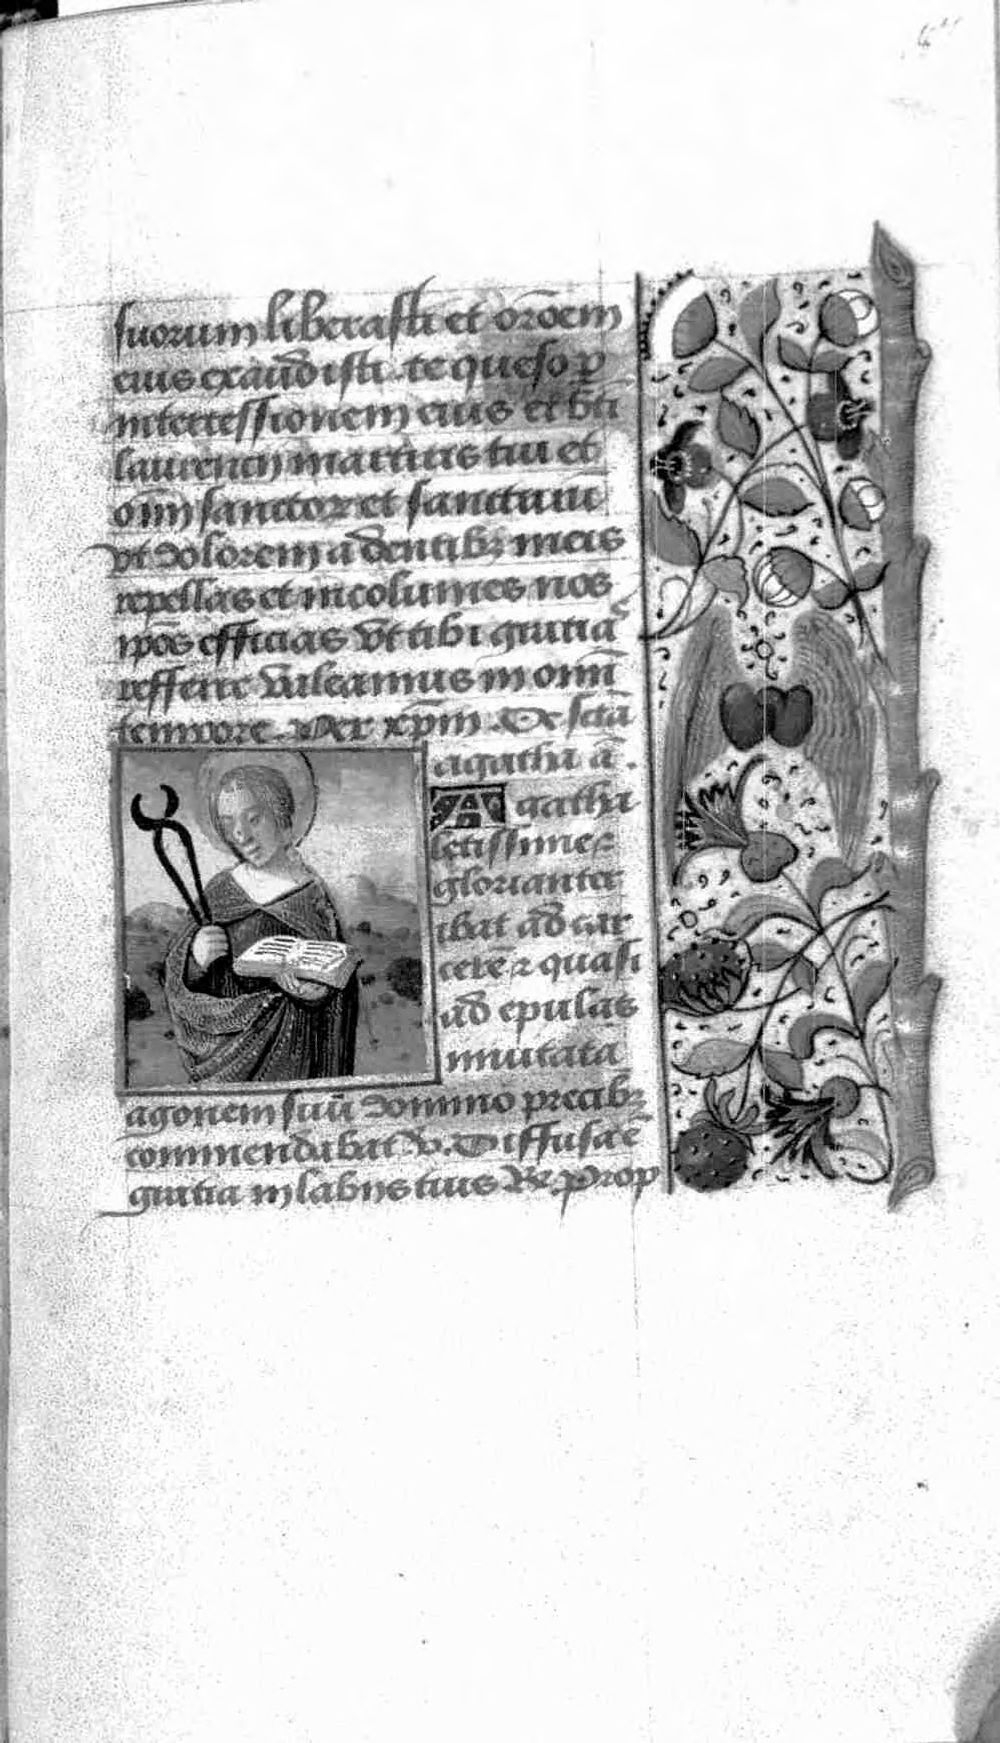 suorum liberasti et orōem
eius exaudisti te queso ꝑ
intercessionem eius et bti
laurencij martiris tui et
oīm sanctoꝝ et sanctaru
vt dolorem a dentibꝫ meis
repellas et incolumes nos
ipōs efficias vt tibi gratiā
refferre valeamus in omni
tempore. Per xp̄m. De sctā
agatha ā.
Agatha
letissime ⁊
glorianter
ibat ad car
cerē ⁊ quasi
ad epulas
inuitata
agonem suū domino precibꝫ
commendabat. v. Diffusa ē
gratia in labijs tuis Re. prop